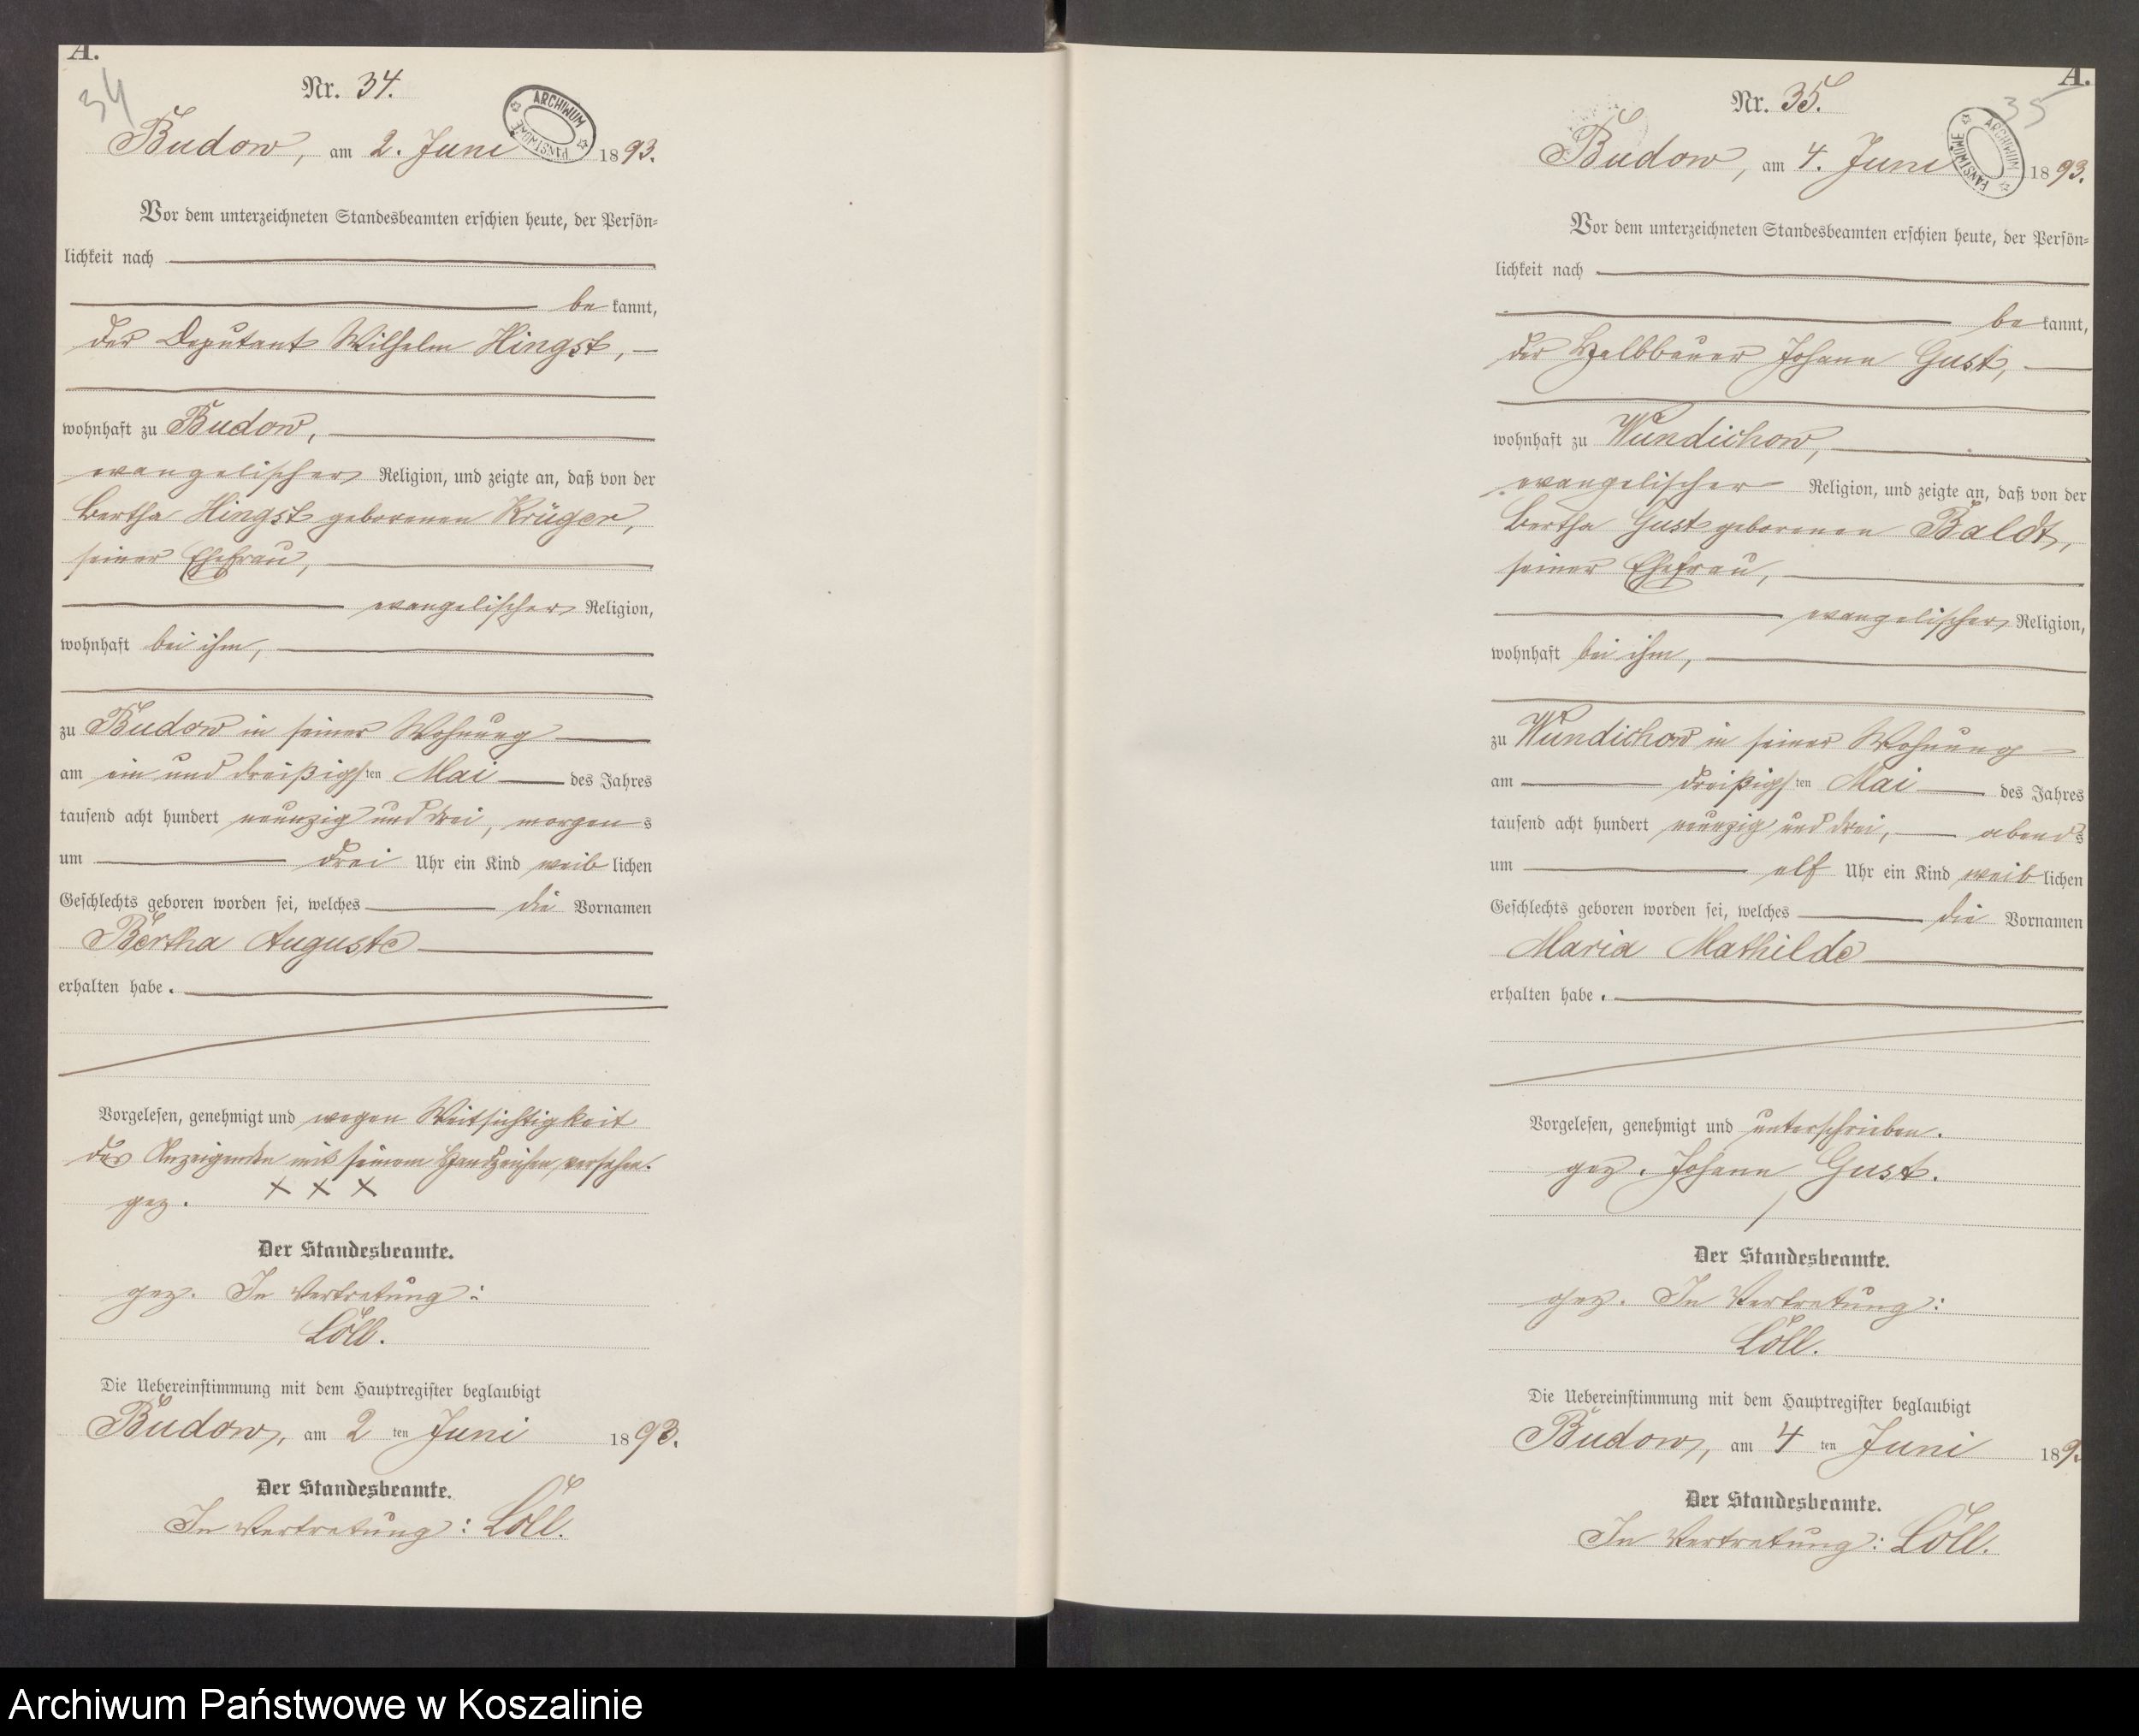 A.
34
Nr. 34.
ARCHIWUM PAŃSTWOWE
Budow, am 2. Juni 1893.
Vor dem unterzeichneten Standesbeamten erschien heute, der Persön-
lichkeit nach
be kannt,
der Deputant Wilhelm Hingst,
wohnhaft zu Budow,
evangelischer Religion, und zeigte an, daß von der
Bertha Hingst geborenen Krüger,
seiner Ehefrau,
evangelischer Religion,
wohnhaft bei ihm,
zu Budow in seiner Wohnung
am ein und dreißigsten Mai des Jahres
tausend acht hundert neunzig und drei, morgens
um drei Uhr ein Kind weiblichen
Geschlechts geboren worden sei, welches die Vornamen
Bertha Auguste
erhalten habe.
Vorgelesen, genehmigt und wegen Weitsichtigkeit
des Anzeigenden mit seinem Handzeichen versehen.
gez. X X X
Der Standesbeamte.
gez. In Vertretung:
Löll.
Die Uebereinstimmung mit dem Hauptregister beglaubigt
Budow, am 2 ten Juni 1893.
Der Standesbeamte.
In Vertretung: Löll.
A.
35
Nr. 35.
ARCHIWUM PAŃSTWOWE
Budow, am 4. Juni 1893.
Vor dem unterzeichneten Standesbeamten erschien heute, der Persön-
lichkeit nach
be kannt,
der Halbbauer Johann Gust,
wohnhaft zu Wundichow,
evangelischer Religion, und zeigte an, daß von der
Bertha Gust geborenen Baldt,
seiner Ehefrau,
evangelischer Religion,
wohnhaft bei ihm,
zu Wundichow in seiner Wohnung
am dreißigsten Mai des Jahres
tausend acht hundert neunzig und drei, abends
um elf Uhr ein Kind weiblichen
Geschlechts geboren worden sei, welches die Vornamen
Maria Mathilde
erhalten habe.
Vorgelesen, genehmigt und unterschrieben.
gez. Johann Gust.
Der Standesbeamte.
gez. In Vertretung:
Löll.
Die Uebereinstimmung mit dem Hauptregister beglaubigt
Budow, am 4 ten Juni 189
Der Standesbeamte.
In Vertretung: Löll.
Archiwum Państwowe w Koszalinie